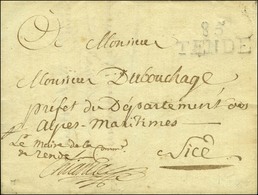 85
TENDE
A Monsieur
Monsieur Dubouchage
préfet du Département des
Alpes-Maritimes
Le Maire de la
de Tende
Nice